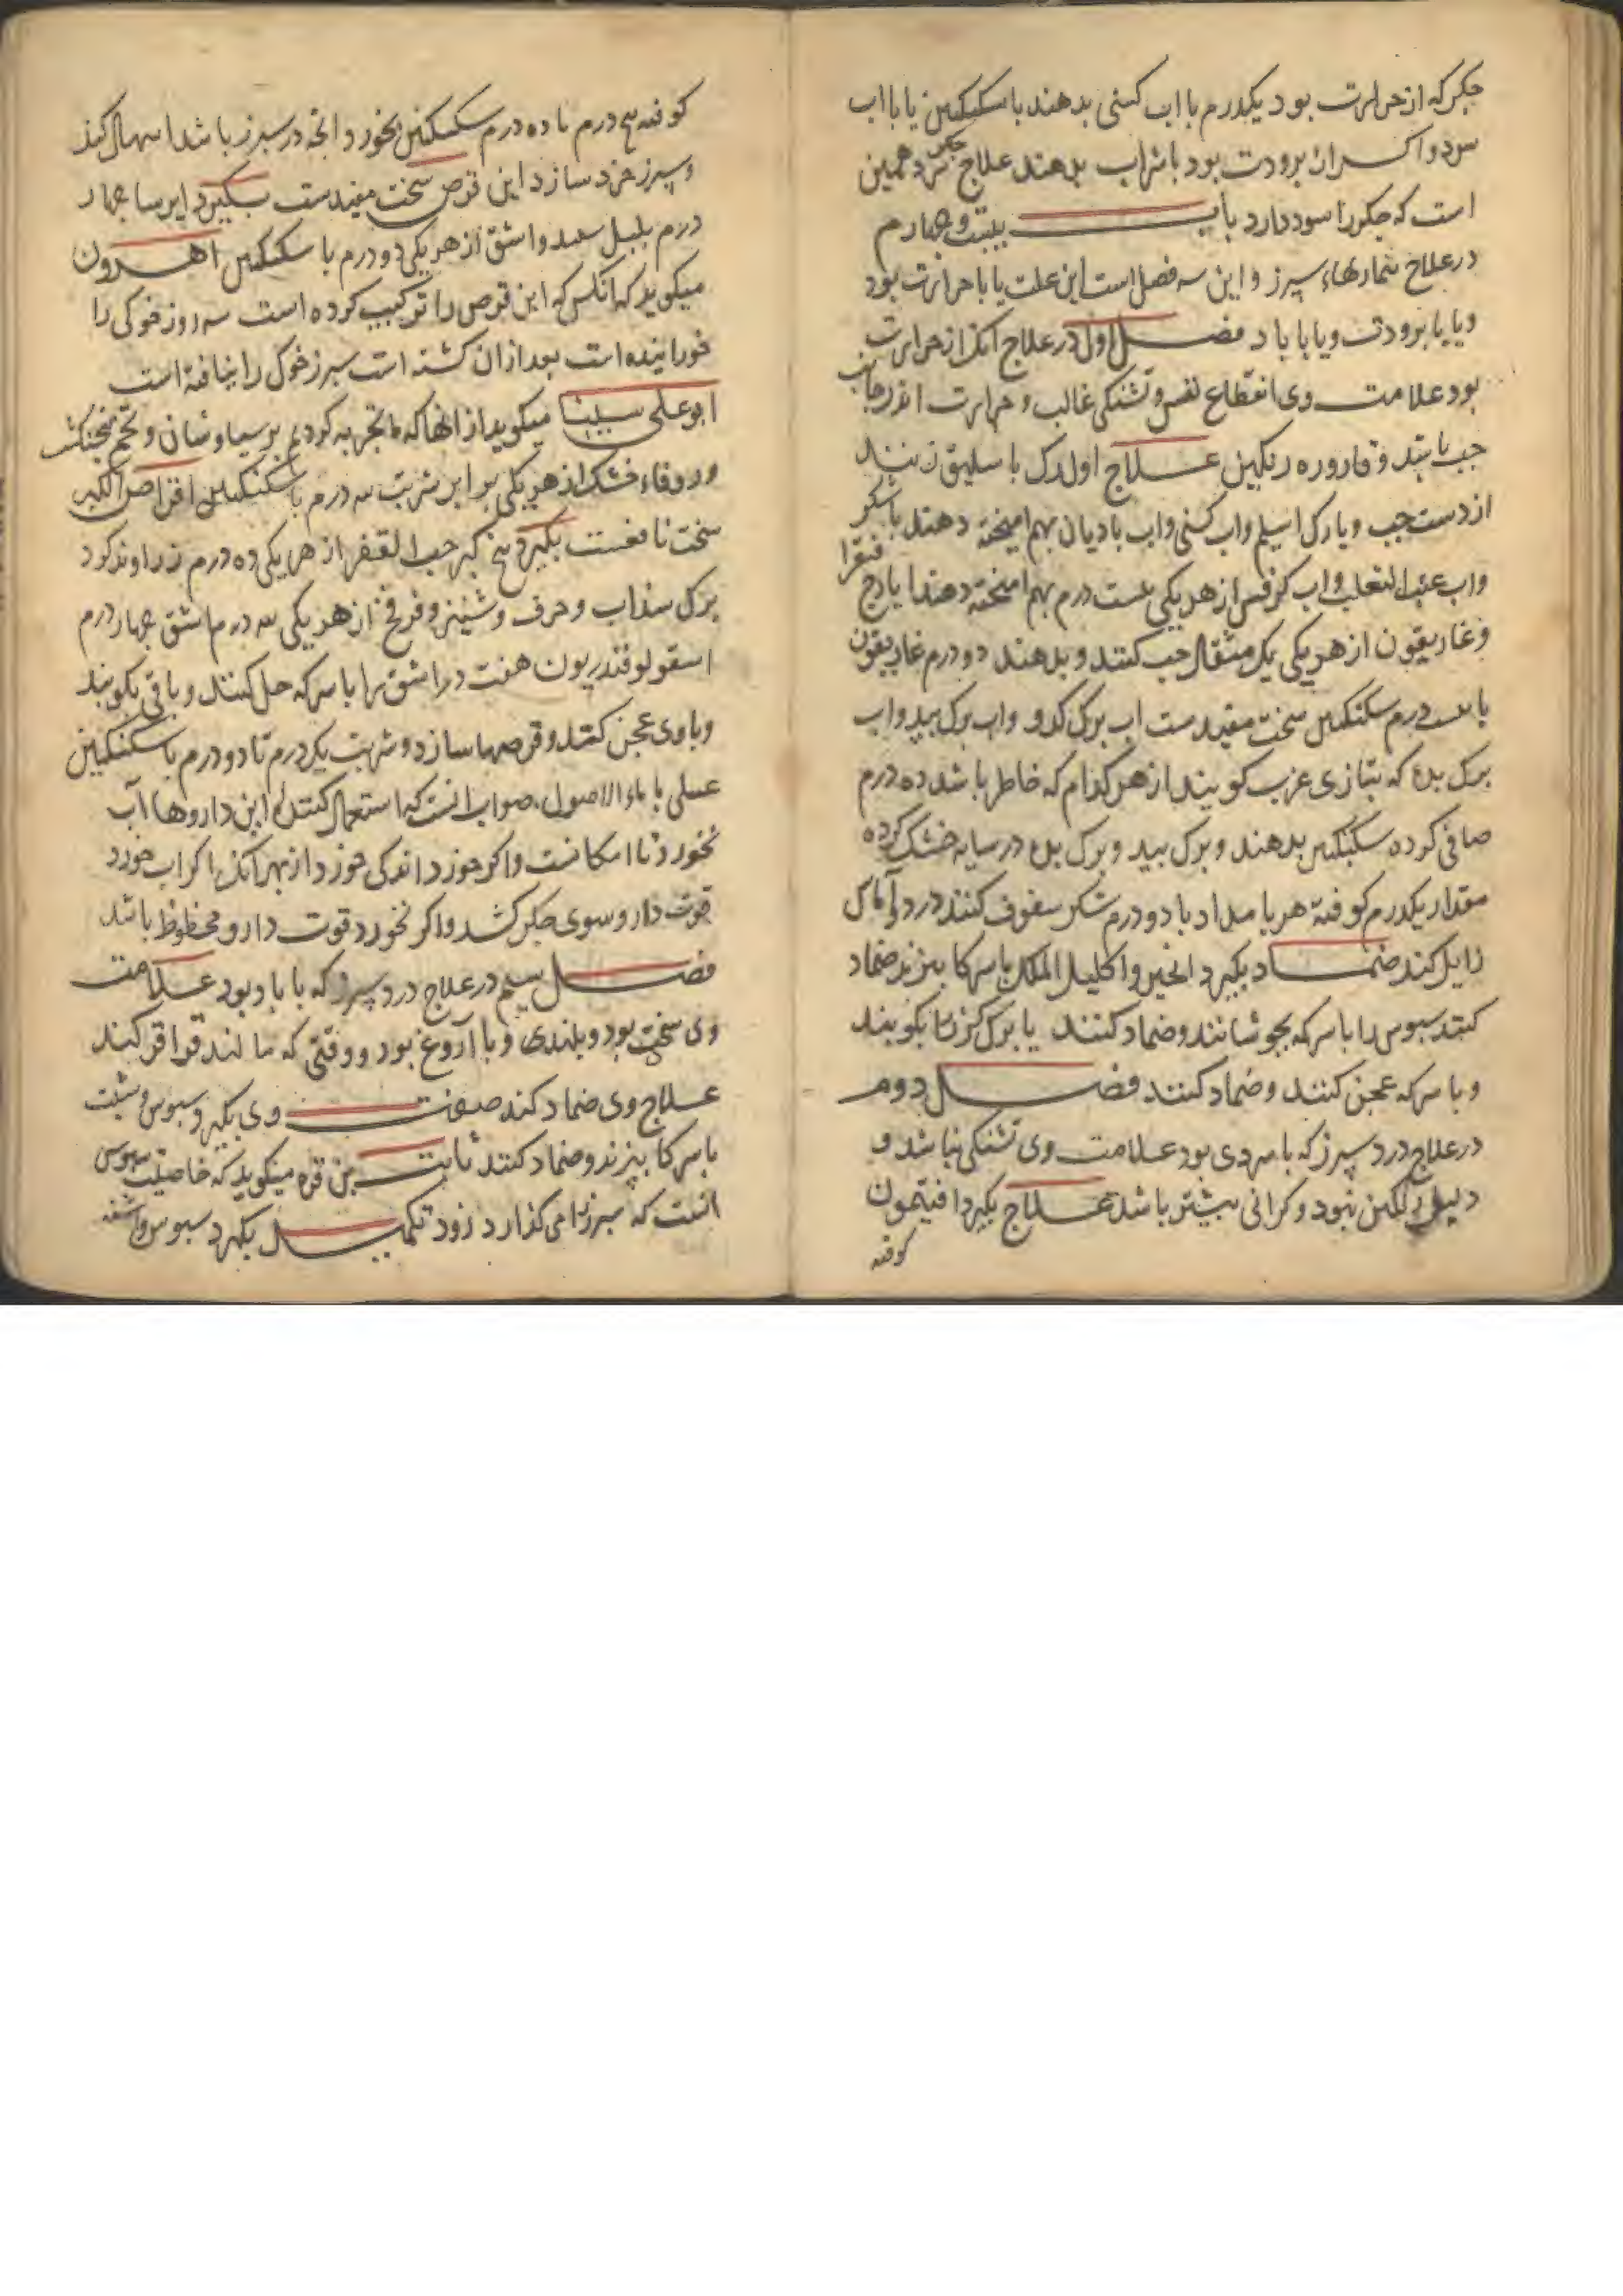 جکر که از حرارت بود یکدرم با اب کسنی بدهند با سکنکبین یا با اب
سرد و اکر از برودت بود با شراب بدهند علاج جکر سرد همین
است که جکر را سود دارد باب بیست و چهارم
در علاج بیماریهاء سپرز و این سه فصل است این علت یا با حرارت بود
و یا با برودت و یا با باد فصل اول در علاج آنک از حرارت
بود علامت وی انقطاع نفس و تشنکی غالب و حرارت اندر جانب
جب باشد و قاروره رنکین علاج اول رک باسلیق زنند
از دست جب و یا رک اسیلم و اب کسنی و اب بادیان بهم امیخته دهند با شکر
و اب عنب الثعلب و اب کرفس از هر یکی بیست درم بهم امیخته دهند ایارج فیقرا
و غاریقون از هر یکی یک مثقال حب کنند و بدهند دو درم غاریقون
با بیست درم سکنکبین سخت مفیدست اب برک کدو و اب برک بید و اب
برک بده که بتازی غرب کویند از هر کدام که خاطر باشد ده درم
صافی کرده سکنکبین بدهند و برک بید و برک بده در سایه خشک کرده
مقدار یکدرم کوفته هر بامداد با دو درم شکر سفوف کنند درد و آماس
زایل کند ضماد بکیرد انجیر و اکلیل الملک با سرکا بپزند ضماد
کنند سبوس را با سرکه بجوشانند و ضماد کنند یا برک کز را بکوبند
و با سرکه عجن کنند و ضماد کنند فصل دوم
در علاج درد سپرز که با سردی بود علامت وی تشنکی نباشد و
دلیل رنکین نبود و کرانی بیشتر باشد علاج بکیرد افتیمون
کوفته
کوفته پنج درم با ده درم سکنکبین بخورد و انچه در سپرز باشد اسهال کند
و سپرز خرد سازد این قرص سخت مفیدست بکیرد ایرسا چهار
درم بلبل سبید و اشق از هر یکی دو درم با سکنکبین اهرون
میکوید که انکس که این قرص را ترکیب کرده است سه روز خوکی را
خورانیده است بعد از ان کشته است سبرز خوک را نیافته است
ابو علی سینا میکوید از انها که ما تجربه کردیم برسیاوشان و تخم فنجنکشت
و زوفاء خشک از هر یکی برابر شربت سه درم با سکنکبین اقراص الکبر
سخت نافعست بکیرد بیخ کبر حب الفقد از هر یکی ده درم زراوند کرد
برک سداب و حرف و شینیز و فرفخ از هر یکی سه درم اشق چهار درم
اسقولوقندریون هفت درم اشق را با سرکه حل کنند و باقی بکوبند
و با وی عجن کنند و قرصها سازد و شربت یکدرم تا دو درم با سکنکبین
عسلی با ماء الاصول صواب انست که استعمال کنندهٔ این داروها آب
نخورد تا امکانست و اکر خورد اندکی خورد از بهر آنک اکر اب خورد
قوت دارو سوی جکر کشد و اکر نخورد قوت دارو محظوظ باشد
فصل سیم در علاج درد سپرز که با باد بود علامت
وی سختی بود و بلندی و با آروغ بود و وقتی که مالند قراقر کند
علاج وی ضماد کند صفت وی بکیرد سبوس و شبت
با سرکا بپزند و ضماد کنند ثابت بن قره میکوید که خاصیت سبوس
انست که سبرز را می کدازد زود تکمیل بکیرد سبوس و اشنه